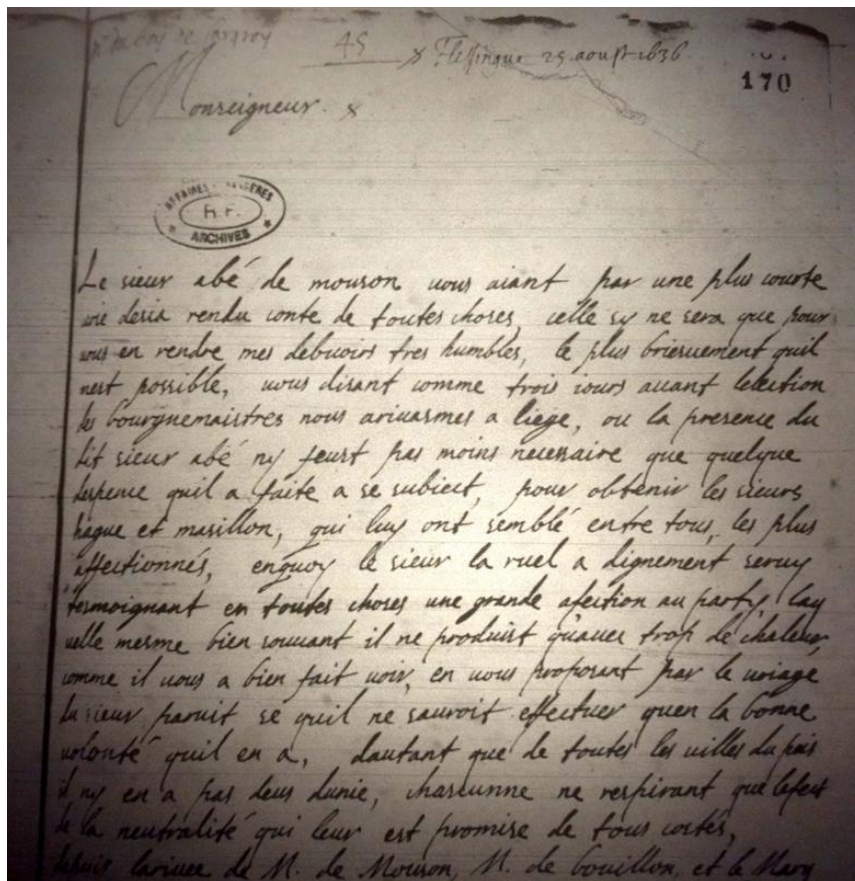 45
Flessingue 25 aoust 1636
170
Monseigneur.
AFFAIRES ETRANGERES
R.F.
ARCHIVES
Le sieur abé de mouson vous aiant par une plus courte
voie desia rendu conte de toutes choses, celle cy ne sera que pour
vous en rendre mes debuoirs tres humbles, le plus briesuement quil
mest possible, vous disant comme trois iours auant lelection
des bourgnemaistres nous ariuasmes a liege, ou la presence du
dit sieur abé ny feust pas moins necessaire que quelque
despence quil a faite a se subiect, pour obtenir les sieurs
hague et masillon, qui luy ont semblé entre tous, les plus
affectionnés, enquoy le sieur la ruel a dignement seruy
tesmoignant en toutes choses une grande afection au party, laq
uelle mesme bien souuant il ne produist qauec trop de chaleur,
comme il vous a bien fait voir, en vous proposant par le voiage
du sieur se quil ne sauroit effectuer quen la bonne
volonté quil en a, dautant que de toutes les villes du pais
il ny en a pas deus dunie, chascunne ne respirant que lefect
de la neutralité qui leur est promise de tous costés,
depuis lariuee de M. de Mouson, M. de bouillon, et le Mary